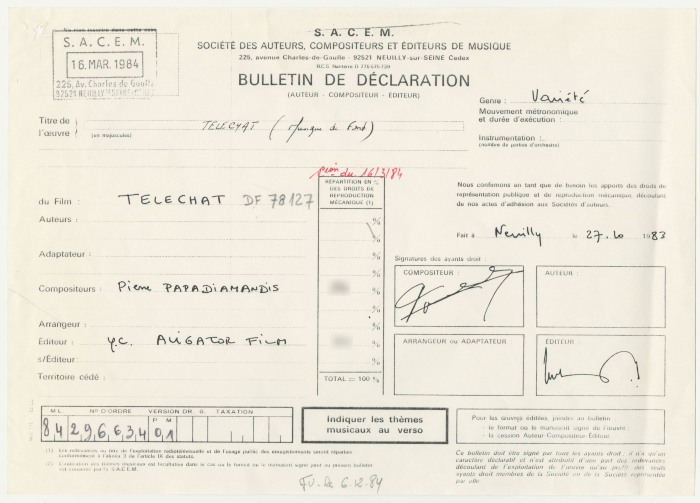 Ne rien inscrire dans cette case
S. A. C. E. M.
16. MAR. 1984
225, Av. Charles de Gaulle
92521 NEUILLY-SUR-SEINE
S. A. C. E. M.
SOCIÉTÉ DES AUTEURS, COMPOSITEURS ET ÉDITEURS DE MUSIQUE
225, avenue Charles-de-Gaulle - 92521 NEUILLY-sur-SEINE Cedex
R.C.S. Nanterre D 775-675-739
BULLETIN DE DÉCLARATION
(AUTEUR - COMPOSITEUR - EDITEUR)
Genre : Variété
Mouvement métronomique
et durée d'exécution :
Instrumentation :
(nombre de parties d'orchestre)
Titre de l'œuvre (en majuscules) : TELECHAT (Musique de Fond)
du 16/3/84
RÉPARTITION EN %
DES DROITS DE
REPRODUCTION
MÉCANIQUE (1)
du Film : TELECHAT DF 78127
Auteurs : %
%
Adaptateur : %
%
Compositeurs : Pierre PAPADIAMANDIS %
%
Arrangeur : %
Éditeur : Y.C. ALIGATOR FILM %
s/Éditeur : %
Territoire cédé : TOTAL = 100 %
Nous confirmons en tant que de besoin les apports des droits de
représentation publique et de reproduction mécanique, découlant
de nos actes d'adhésion aux Sociétés d'auteurs.
Fait à Neuilly le 27.10 1983
Signatures des ayants droit :
COMPOSITEUR : AUTEUR :
ARRANGEUR OU ADAPTATEUR ÉDITEUR
M L N° D'ORDRE VERSION DR G. TAXATION
P M
84 296634 01
indiquer les thèmes
musicaux au verso
Pour les œuvres éditées, joindre au bulletin :
- le format ou le manuscrit signé de l'œuvre :
- la cession Auteur-Compositeur-Éditeur.
(1) Les redevances au titre de l'exploitation radiotélévisuelle et de l'usage public des enregistrements seront réparties
conformément à l'alinéa 3 de l'article IX des statuts.
(2) L'indication des thèmes musicaux est facultative dans le cas où le format ou le manuscrit signé peut au présent bulletin
est conservé par la S.A.C.E.M.
Ce bulletin doit être signé par tous les ayants droit : il n'a qu'un
caractère déclaratif et n'est attributif d'aucun
découlant de l'exploitation de l'œuvre
des autres membres de la Société ou de la Société représentée
par elle.
FV. De 6.12.84